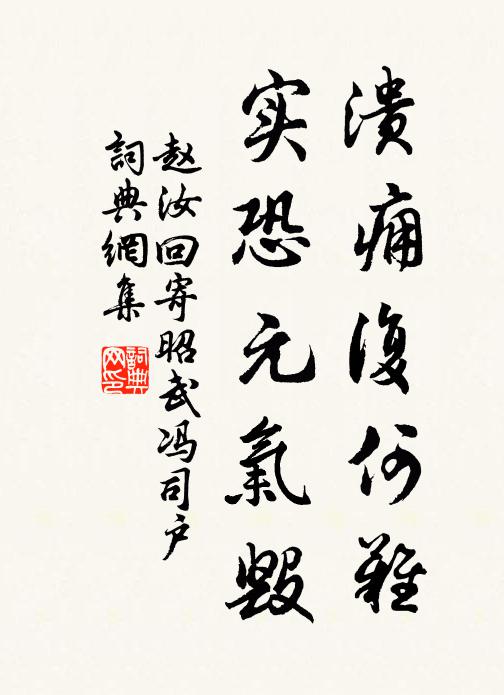 潰痈復何難
实恐元氣毀
赵汝回寄昭武冯司户
詞典網集
詞典網印